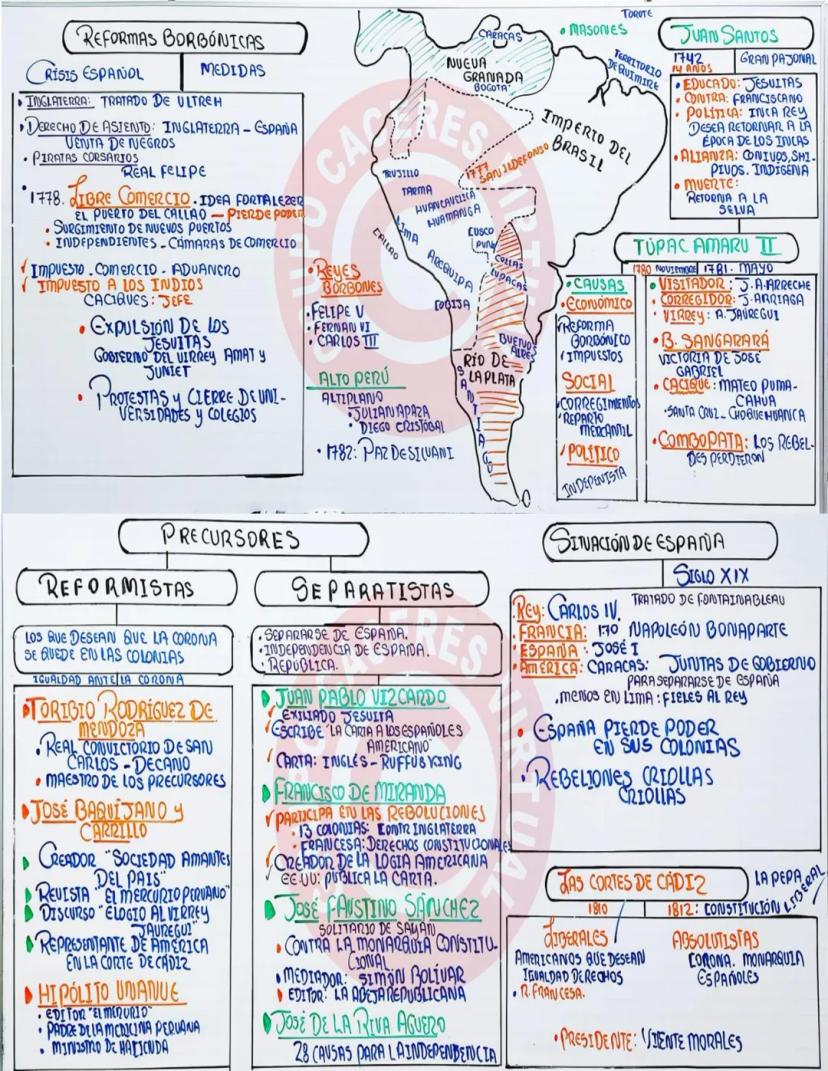 REFORMAS BORBÓNICAS
CRISIS ESPAÑOL
MEDIDAS
• INGLATERRA: TRATADO DE ULTREH
• DERECHO DE ASIENTO: INGLATERRA - ESPAÑA
VENTA DE NEGROS
• PIRATAS CORSARIOS
REAL FELIPE
• 1778. LIBRE COMERCIO. IDEA FORTALEZER
EL PUERTO DEL CALLAO - PIERDE PODER
• SURGIMIENTO DE NUEVOS PUERTOS
• INDEPENDIENTES - CÁMARAS DE COMERCIO
✓ IMPUESTO - COMERCIO - ADUANERO
✓ IMPUESTO A LOS INDIOS
CACIQUES: JEFE
• EXPULSIÓN DE LOS
JESUITAS
GOBIERNO DEL VIRREY AMAT Y
JUNIET
• PROTESTAS Y CIERRE DE UNI-
VERSIDADES Y COLEGIOS
CARACAS
NUEVA
GRANADA
BOGOTA
• MASONES
TOROTE
TERRITORIO
DE QUIMIRE
IMPERIO DEL
BRASIL
1777
SAN ILDEFONSO
TRUJILLO
TARMA
HUANCAVELICA
HUAMANGA
LIMA
CALLAO
CUSCO
PUNO
COLLAS
LUPACAS
AREQUIPA
BUENOS
AIRES
RÍO DE
LA PLATA
SANTIAGO
• REYES
BORBONES
• FELIPE V
• FERNAN VI
• CARLOS III
ALTO PERÚ
ALTIPLANO
• JULIAN APAZA
• DIEGO CRISTÓBAL
• 1782: PAZ DE SILVANI
JUAN SANTOS
1742
14 AÑOS
GRAN PAJONAL
• EDUCADO: JESUITAS
• CONTRA: FRANCISCANO
• POLÍTICA: INCA REY
DESEA RETORNAR A LA
ÉPOCA DE LOS INCAS
• ALIANZA: CONIVOS, SHI-
PIVOS. INDÍGENA
• MUERTE:
RETORNA A LA
SELVA
TÚPAC AMARU II
1780 NOVIEMBRE
1781. MAYO
• VISITADOR: J.A. ARRECHE
• CORREGIDOR: J. ARRIAGA
• VIRREY: A. JAÚREGUI
• B. SANGARARÁ
VICTORIA DE JOSÉ
GABRIEL
• CACIQUE: MATEO PUMA-
CAHUA
• SANTA CRUZ - CHOQUEHUANCA
• COMBOPATA: LOS REBEL-
DES PERDIERON
• CAUSAS
• ECONÓMICO
✓ REFORMA
BORBÓNICO
✓ IMPUESTOS
SOCIAL
✓ CORREGIMIENTOS
✓ REPARTO
MERCANTIL
✓ POLÍTICO
INDEPENTISTA
PRECURSORES
REFORMISTAS
LOS QUE DESEAN QUE LA CORONA
SE QUEDE EN LAS COLONIAS
IGUALDAD ANTE LA CORONA
TORIBIO RODRÍGUEZ DE
MENDOZA
• REAL CONVICTORIO DE SAN
CARLOS - DECANO
• MAESTRO DE LOS PRECURSORES
JOSÉ BAQUÍJANO Y
CARRILLO
CREADOR "SOCIEDAD AMANTES
DEL PAIS"
REVISTA "EL MERCURIO PERUANO"
DISCURSO "ELOGIO AL VIRREY
JAUREGUI"
REPRESENTANTE DE AMÉRICA
EN LA CORTE DE CÁDIZ
HIPÓLITO UNANUE
• EDITOR "EL MERURIO"
• PADRE DE LA MEDICINA PERUANA
• MINISTRO DE HACIENDA
SEPARATISTAS
• SEPARARSE DE ESPAÑA.
• INDEPENDENCIA DE ESPAÑA.
• REPÚBLICA.
JUAN PABLO VIZCARDO
✓ EXILIADO JESUITA
✓ ESCRIBE "LA CARTA A LOS ESPAÑOLES
AMERICANO"
✓ CARTA: INGLÉS - RUFFUS KING
FRANCISCO DE MIRANDA
✓ PARTICIPA EN LAS REBOLUCIONES
• 13 COLONIAS: CONTR INGLATERRA
• FRANCESA: DERECHOS CONSTITUCIONALES
✓ CREADOR DE LA LOGIA AMERICANA
EE.UU: PUBLICA LA CARTA.
JOSÉ FAUSTINO SÁNCHEZ
SOLITARIO DE SAYÁN
• CONTRA LA MONARQUIA CONSTITU-
CIONAL
• MEDIADOR: SIMÓN BOLÍVAR
EDITOR: LA ABEJA REPUBLICANA
JOSÉ DE LA RIVA AGUERO
28 CAUSAS PARA LA INDEPENDENCIA
SITUACIÓN DE ESPAÑA
SIGLO XIX
REY: CARLOS IV.
TRATADO DE FONTAINABLEAU
FRANCIA: 170 NAPOLEÓN BONAPARTE
ESPAÑA: JOSÉ I
AMÉRICA: CARACAS: JUNTAS DE GOBIERNO
PARA SEPARARSE DE ESPAÑA
• MENOS EN LIMA: FIELES AL REY
• ESPAÑA PIERDE PODER
EN SUS COLONIAS
• REBELIONES CRIOLLAS
CRIOLLAS
LAS CORTES DE CÁDIZ
LA PEPA
LIBERAL
1810
1812: CONSTITUCIÓN
LIBERALES
AMERICANOS QUE DESEAN
IGUALDAD DERECHOS
• R. FRANCESA.
ABSOLUTISTAS
CORONA. MONARQUIA
ESPAÑOLES
• PRESIDENTE: VIENTE MORALES
GRUPO CACERES VIRTUAL